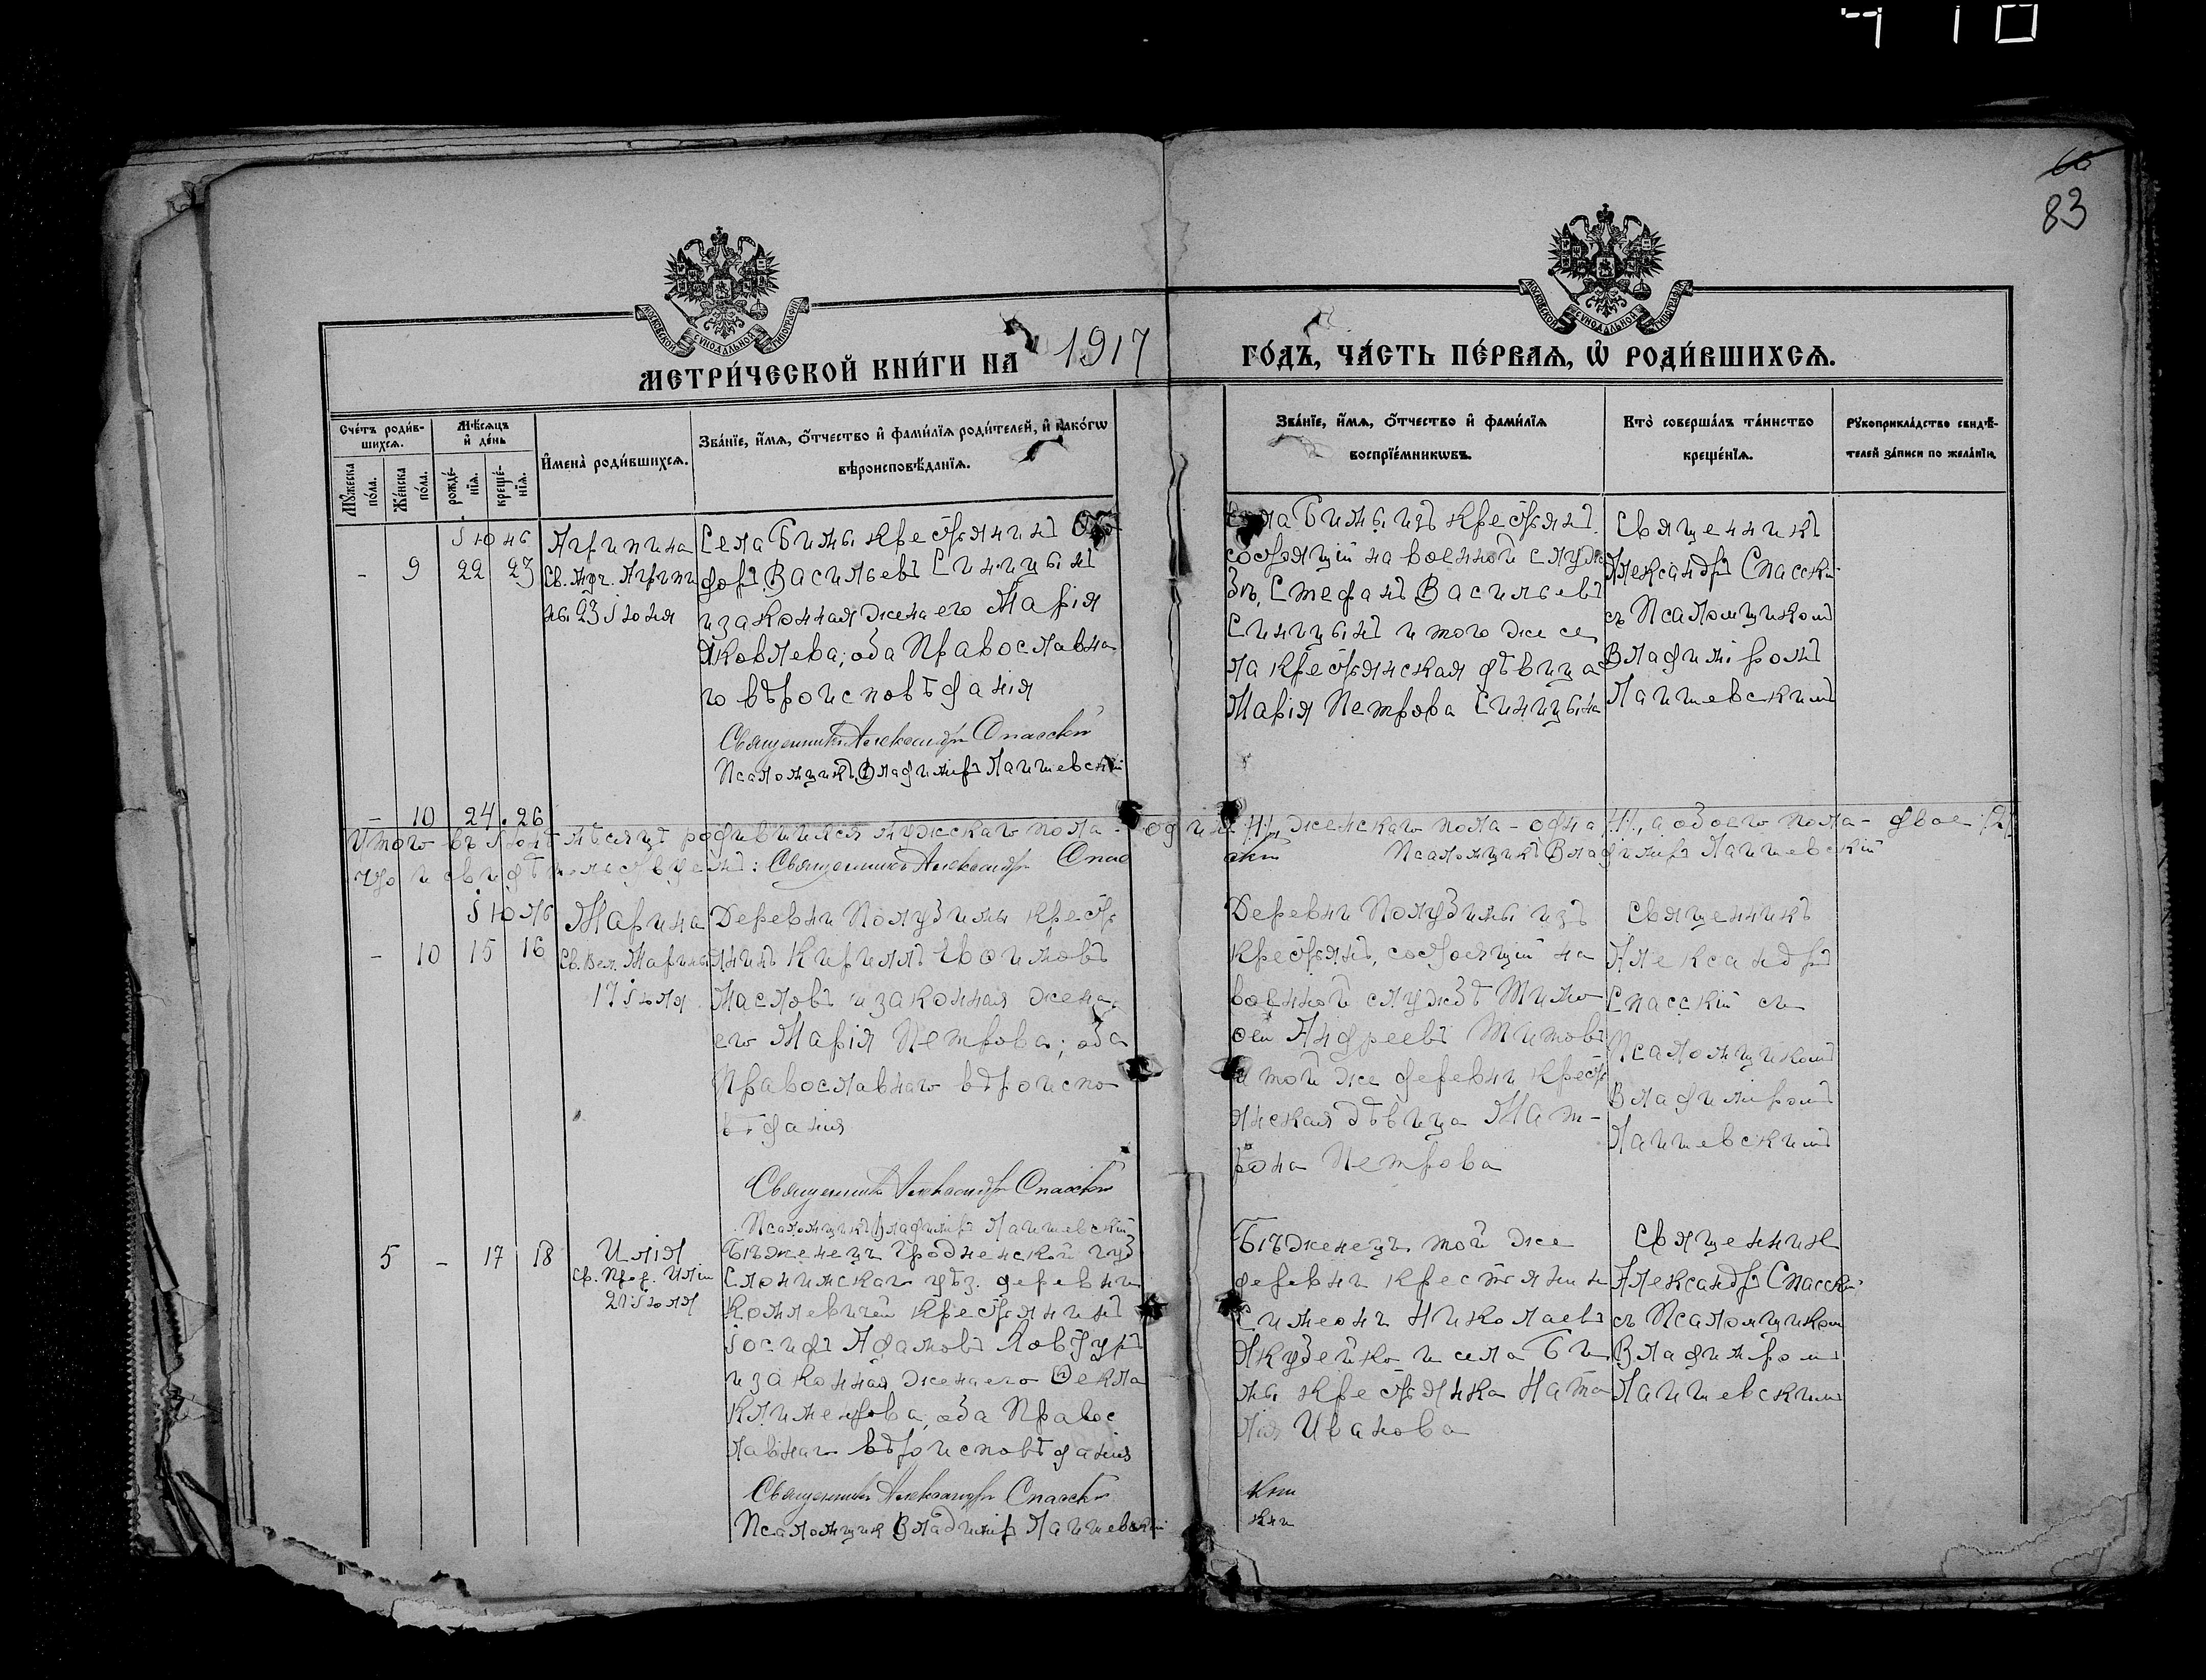 410
83
МОСКОВСКОЙ СѴНОДАЛЬНОЙ ТИПОГРАФІИ
МОСКОВСКОЙ СѴНОДАЛЬНОЙ ТИПОГРАФІИ
МЕТРИ́ЧЕСКОЙ КНИ́ГИ НА 1917 ГО́ДЪ, ЧА́СТЬ ПЕ́РВАЯ, Ѡ РОДИ́ВШИХСЯ.
Сче́тъ роди́в-
шихся.
Мѣ́сяцъ
и де́нь
Му́жеска
по́ла.
Же́нска
по́ла.
рожде́-
нія.
креще́-
нія.
Имена̀ роди́вшихся.
Зва́ніе, и́мя, о́тчество и фами́лія роди́телей, и како́гѡ
вѣроисповѣ́данія.
Зва́ніе, и́мя, о́тчество и фами́лія
воспріе́мникѡвъ.
Кто̀ соверша́лъ та́инство
креще́нія.
Рукоприкла́дство свидѣ́-
телей за́писи по жела́нію.
Іюнь
- 9 22 23
Агрипина
Св. муч. Агрипи
ны 23 Іюня
Села Бимы крестьянинъ
доръ Васильевъ Синицынъ
и законная жена его Марія
Яковлева; оба Православна
го вѣроисповѣданія
Священникъ Александръ Спасскій
Псаломщикъ Владиміръ Лаишевскій
Села Бимы изъ крестьянъ
состоящій на военной служ
бѣ, Стефанъ Васильевъ
Синицынъ и того же се
ла крестьянская дѣвица
Марія Петрова Синицына
Священникъ
Александръ Спасскій
съ Псаломщикомъ
Владиміромъ
Лаишевскимъ
- 10 24 26
Итого въ Іюнѣ мѣсяцѣ родившихся мужскаго пола - одинъ /1/, женскаго пола - одна /1/, а обоего пола - двое /2/
что и свидѣтельствуемъ: Священникъ Александръ Спасскій Псаломщикъ Владиміръ Лаишевскій
Іюль
- 10 15 16
Марина
Св. Вел. Марины
17 Іюля
Деревни Полузимы кресть
янинъ Кириллъ
Масловъ и законная жена
его Марія Петрова; оба
Православнаго вѣроиспо
вѣданія
Священникъ Александръ Спасскій
Псаломщикъ Владиміръ Лаишевскій
Деревни Полузимы изъ
крестьянъ, состоящій на
военной службѣ Тимо
фей Андреевъ Титовъ
и той же деревни кресть
янская дѣвица Мат-
рона Петрова
Священникъ
Александръ
Спасскій съ
Псаломщикомъ
Владиміромъ
Лаишевскимъ
5 - 17 18
Илія
Св. Прор. Иліи
20 Іюля
Бѣженецъ Гродненской губ
Слонимскаго уѣз. деревни
крестьянинъ
Іосифъ Адамовъ
и законная жена его Ѳекла
Климентова, оба Правос
лавнаго вѣроисповѣданія
Священникъ Александръ Спасскій
Псаломщик Владиміръ Лаишевскій
Бѣженецъ той же
деревни крестьянин
Симеонъ Николаевъ
и села Би
мы крестьянка Ната
лія Иванова
Священник
Александръ Спасскій
съ Псаломщиком
Владиміромъ
Лаишевскимъ